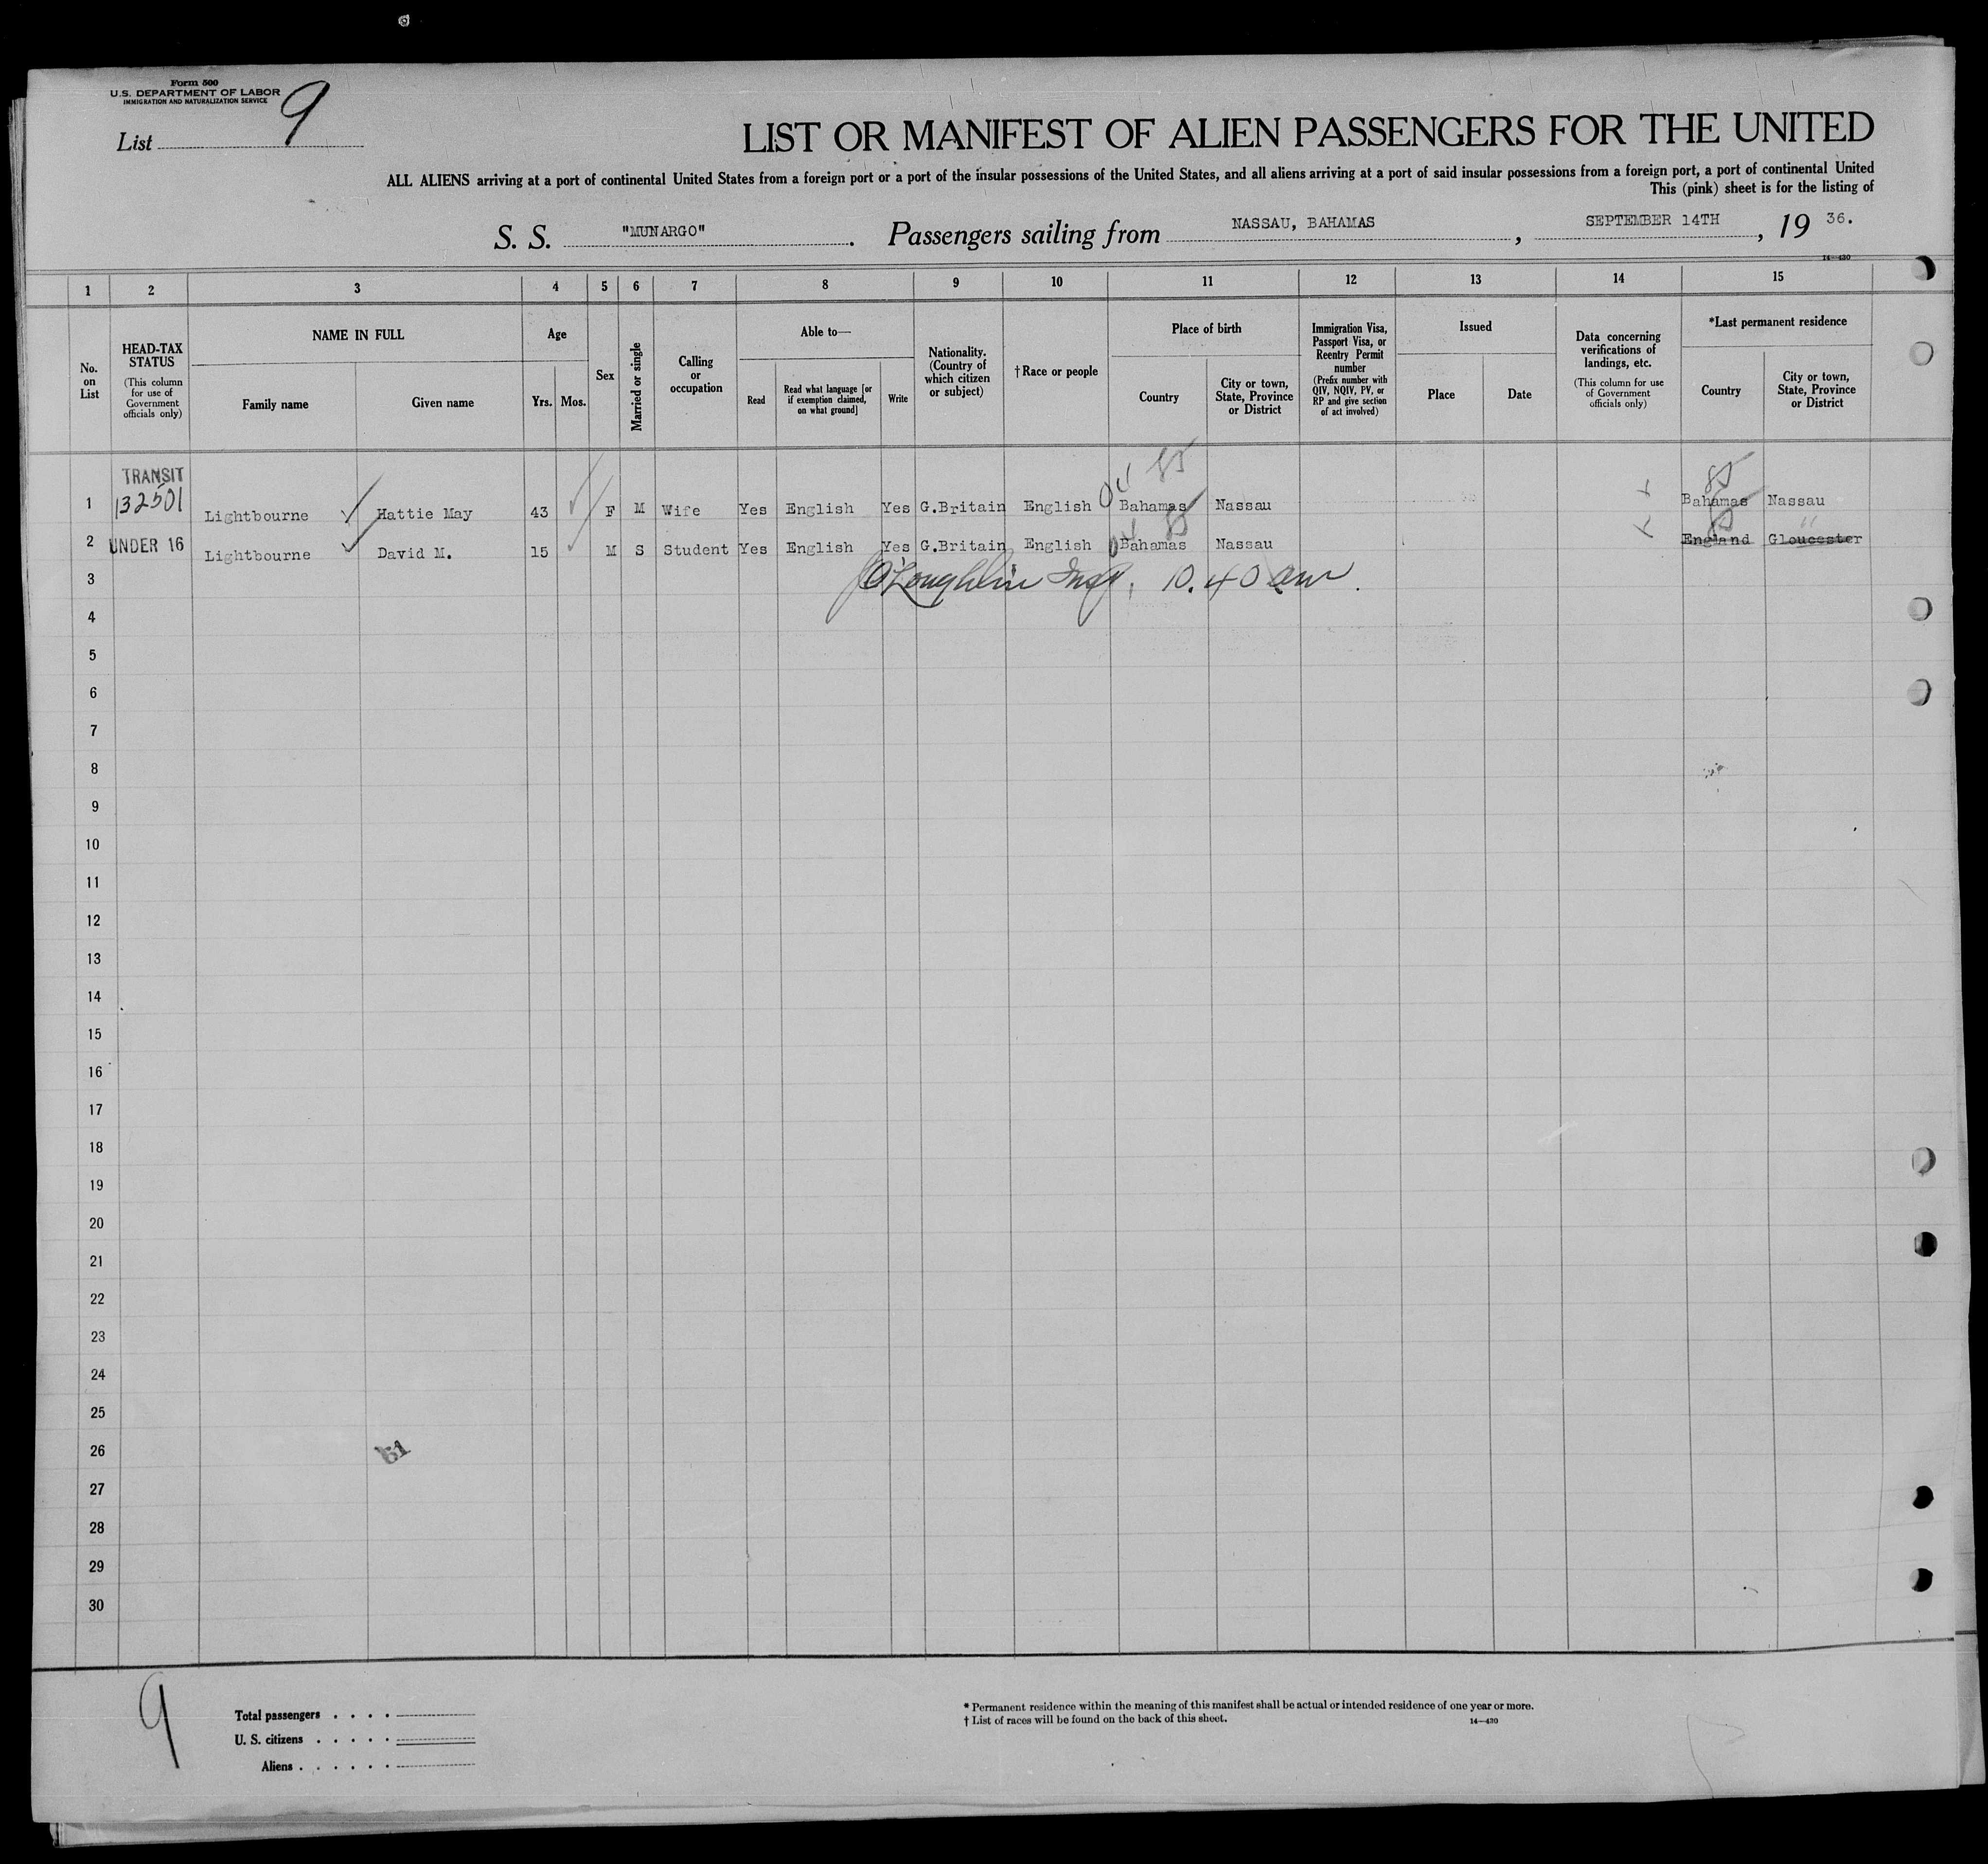 Form 500
U.S. DEPARTMENT OF LABOR
IMMIGRATION AND NATURALIZATION SERVICE
List 9
LIST OR MANIFEST OF ALIEN PASSENGERS FOR THE UNITED
ALL ALIENS arriving at a port of continental United States from a foreign port or a port of the insular possessions of the United States, and all aliens arriving at a port of said insular possessions from a foreign port, a port of continental United
This (pink) sheet is for the listing of
S. S. "MUNARGO". Passengers sailing from NASSAU, BAHAMAS, SEPTEMBER 14TH, 19 36.
14—430
1 2 3 4 5 6 7 8 9 10 11 12 13 14 15
No. on List
HEAD-TAX STATUS (This column for use of Government officials only)
NAME IN FULL
Family name
Given name
Age
Yrs.
Mos.
Sex
Married or single
Calling or occupation
Able to—
Read
Read what language [or if exemption claimed, on what ground]
Write
Nationality. (Country of which citizen or subject)
† Race or people
Place of birth
Country
City or town, State, Province or District
Immigration Visa, Passport Visa, or Reentry Permit number (Prefix number with QIV, NQIV, PV, or RP and give section of act involved)
Issued
Place
Date
Data concerning verifications of landings, etc. (This column for use of Government officials only)
*Last permanent residence
Country
City or town, State, Province or District
TRANSIT 85 85
1 132501 Lightbourne Hattie May 43 F M Wife Yes English Yes G.Britain English Bahamas Nassau Bahamas Nassau
85 85 "
2 UNDER 16 Lightbourne David M. 15 M S Student Yes English Yes G.Britain English Bahamas Nassau England Gloucester
3 O'Loughlin Insp. 10.40 am.
4
5
6
7
8
9
10
11
12
13
14
15
16
17
18
19
20
21
22
23
24
25
26 51
27
28
29
30
9
Total passengers . . . .
U. S. citizens . . . . .
Aliens . . . . . .
* Permanent residence within the meaning of this manifest shall be actual or intended residence of one year or more.
† List of races will be found on the back of this sheet.
14—430